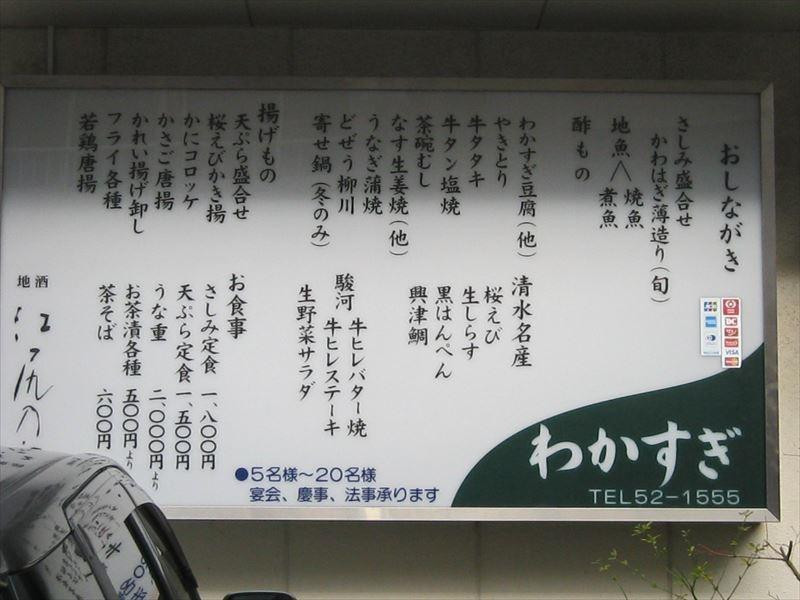 おしながき
さしみ盛合せ
かわはぎ薄造り(旬)
地魚＜焼魚
煮魚
酢もの
わかすぎ豆腐(他)
やきとり
牛タタキ
牛タン塩焼
茶碗むし
なす生姜焼(他)
うなぎ蒲焼
どぜう柳川
寄せ鍋(冬のみ)
揚げもの
天ぷら盛合せ
桜えびかき揚
かにコロッケ
かさご唐揚
かれい揚げ卸し
フライ各種
若鶏唐揚
清水名産
桜えび
生しらす
黒はんぺん
興津鯛
駿河
牛ヒレバター焼
牛ヒレステーキ
生野菜サラダ
お食事
さしみ定食 一、八〇〇円
天ぷら定食 一、五〇〇円
うな重 二、〇〇〇円より
お茶漬各種 五〇〇円より
茶そば 六〇〇円
地酒
●5名様～20名様
宴会、慶事、法事承ります
わかすぎ
TEL52-1555
JCB
VISA